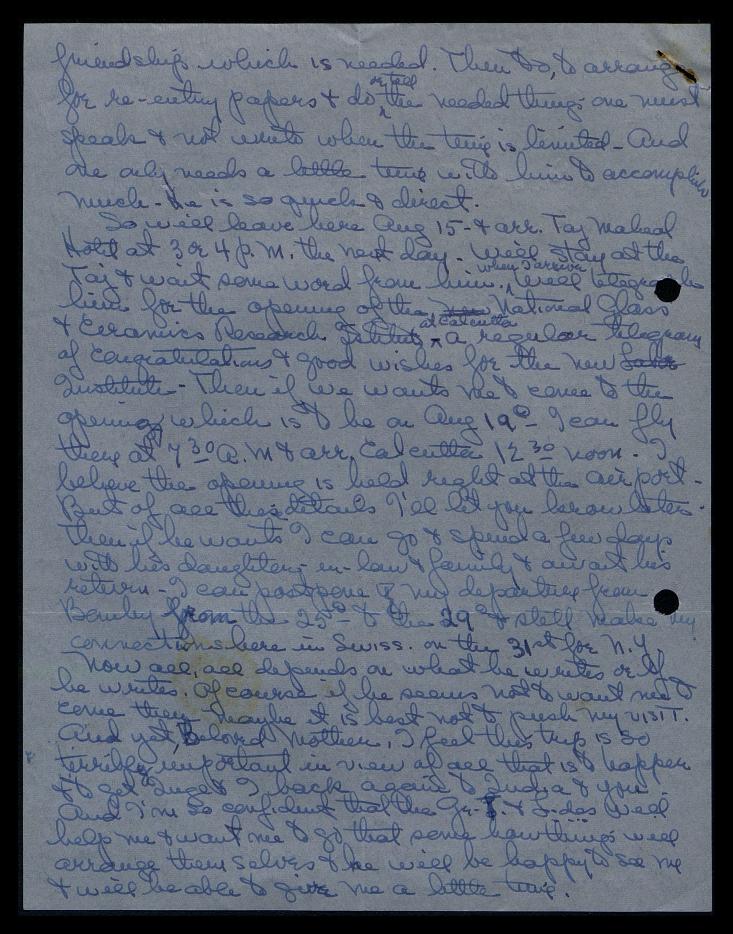 friendship which is needed. Then too, to arrange
for re-entry papers & do or tell the needed things one must
speak & not write when the time is limited - And
one only needs a little time with him to accomplish
much - He is so quick & direct.
So will leave here Aug 15 - & arr. Taj Mahal
Hotel at 3 or 4 p.m. the next day. Will stay at the
Taj & wait some word from him. when I arrive Will telegraph
him for the opening of the National Glass
& Ceramics Research Institute at Calcutta a regular telegram
of congratulations & good wishes for the new
Institute - Then if he wants me to come to the
opening which is to be on Aug 19th - I can fly
there at 7 30 A.M & arr. Calcutta 12 30 noon - I
believe the opening is held right at the airport -
But of all these details I'll let you know later -
then if he wants I can go & spend a few days
with his daughter-in-law & family & await his
return - I can postpone my departure from
Bombay from the 25th to the 29th & still make my
connections here in Swiss. on the 31st for N.Y.
Now all, all depends on what he writes or if
he writes. Of course if he seems not to want me to
come then maybe it is best not to push my visit.
And yet, Beloved Mother, I feel this trip is so
terribly important in view of all that is to happen
& to get & I back again to India & you -
And I'm so confident that the Gr. & Ls. will
help me & want me to go that some how things will
arrange themselves & he will be happy to see me
& will be able to give me a little time.